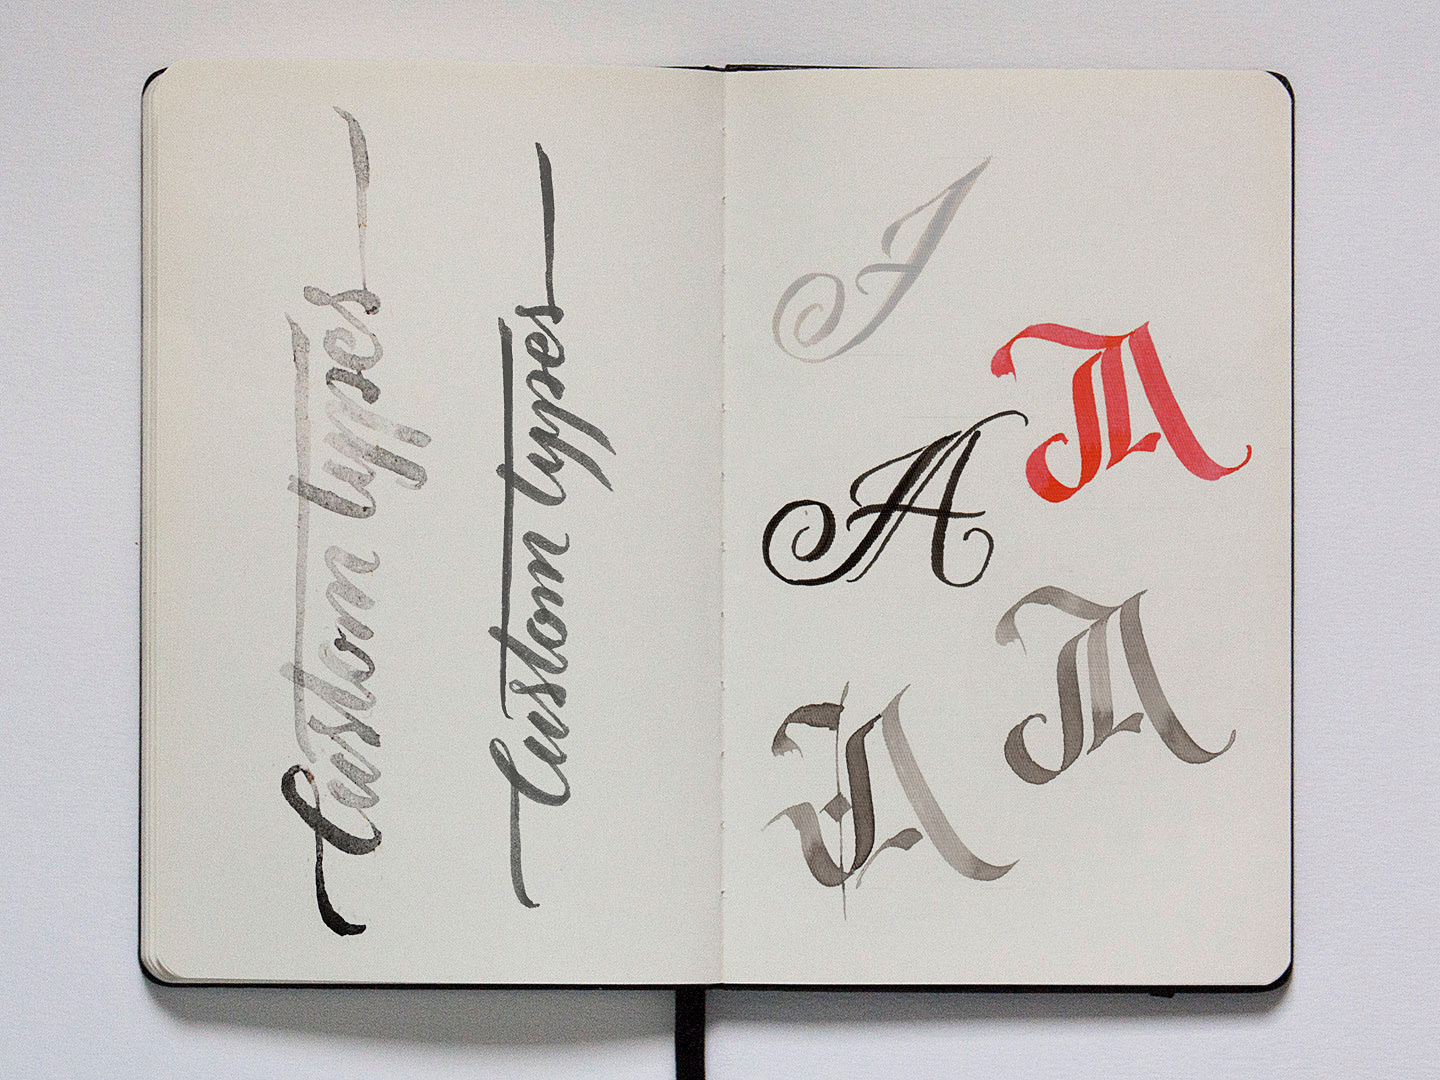 Custom types
Custom types
A
A
A
A
A